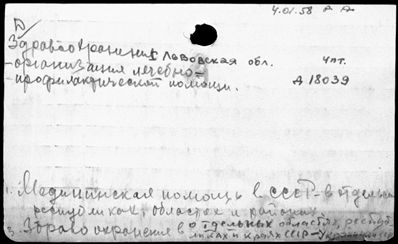 4.01.58
Здравоохранения Львовская обл. чпт.
-организация лечебно- Д 18039
-профилактической помощи.
1. Медицинская помощь в СССР - в отдельных
республиках, областях и районах
3. Здравоохранение в отдельных областях, республ
иках и краях СССР - Украинская ССР